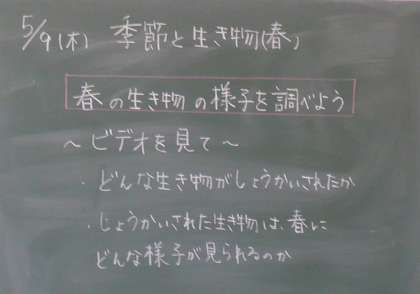 5/9(木) 季節と生き物(春)
春の生き物の様子を調べよう
～ビデオを見て～
・どんな生き物がしょうかいされたか
・しょうかいされた生き物は、春に
どんな様子が見られるのか